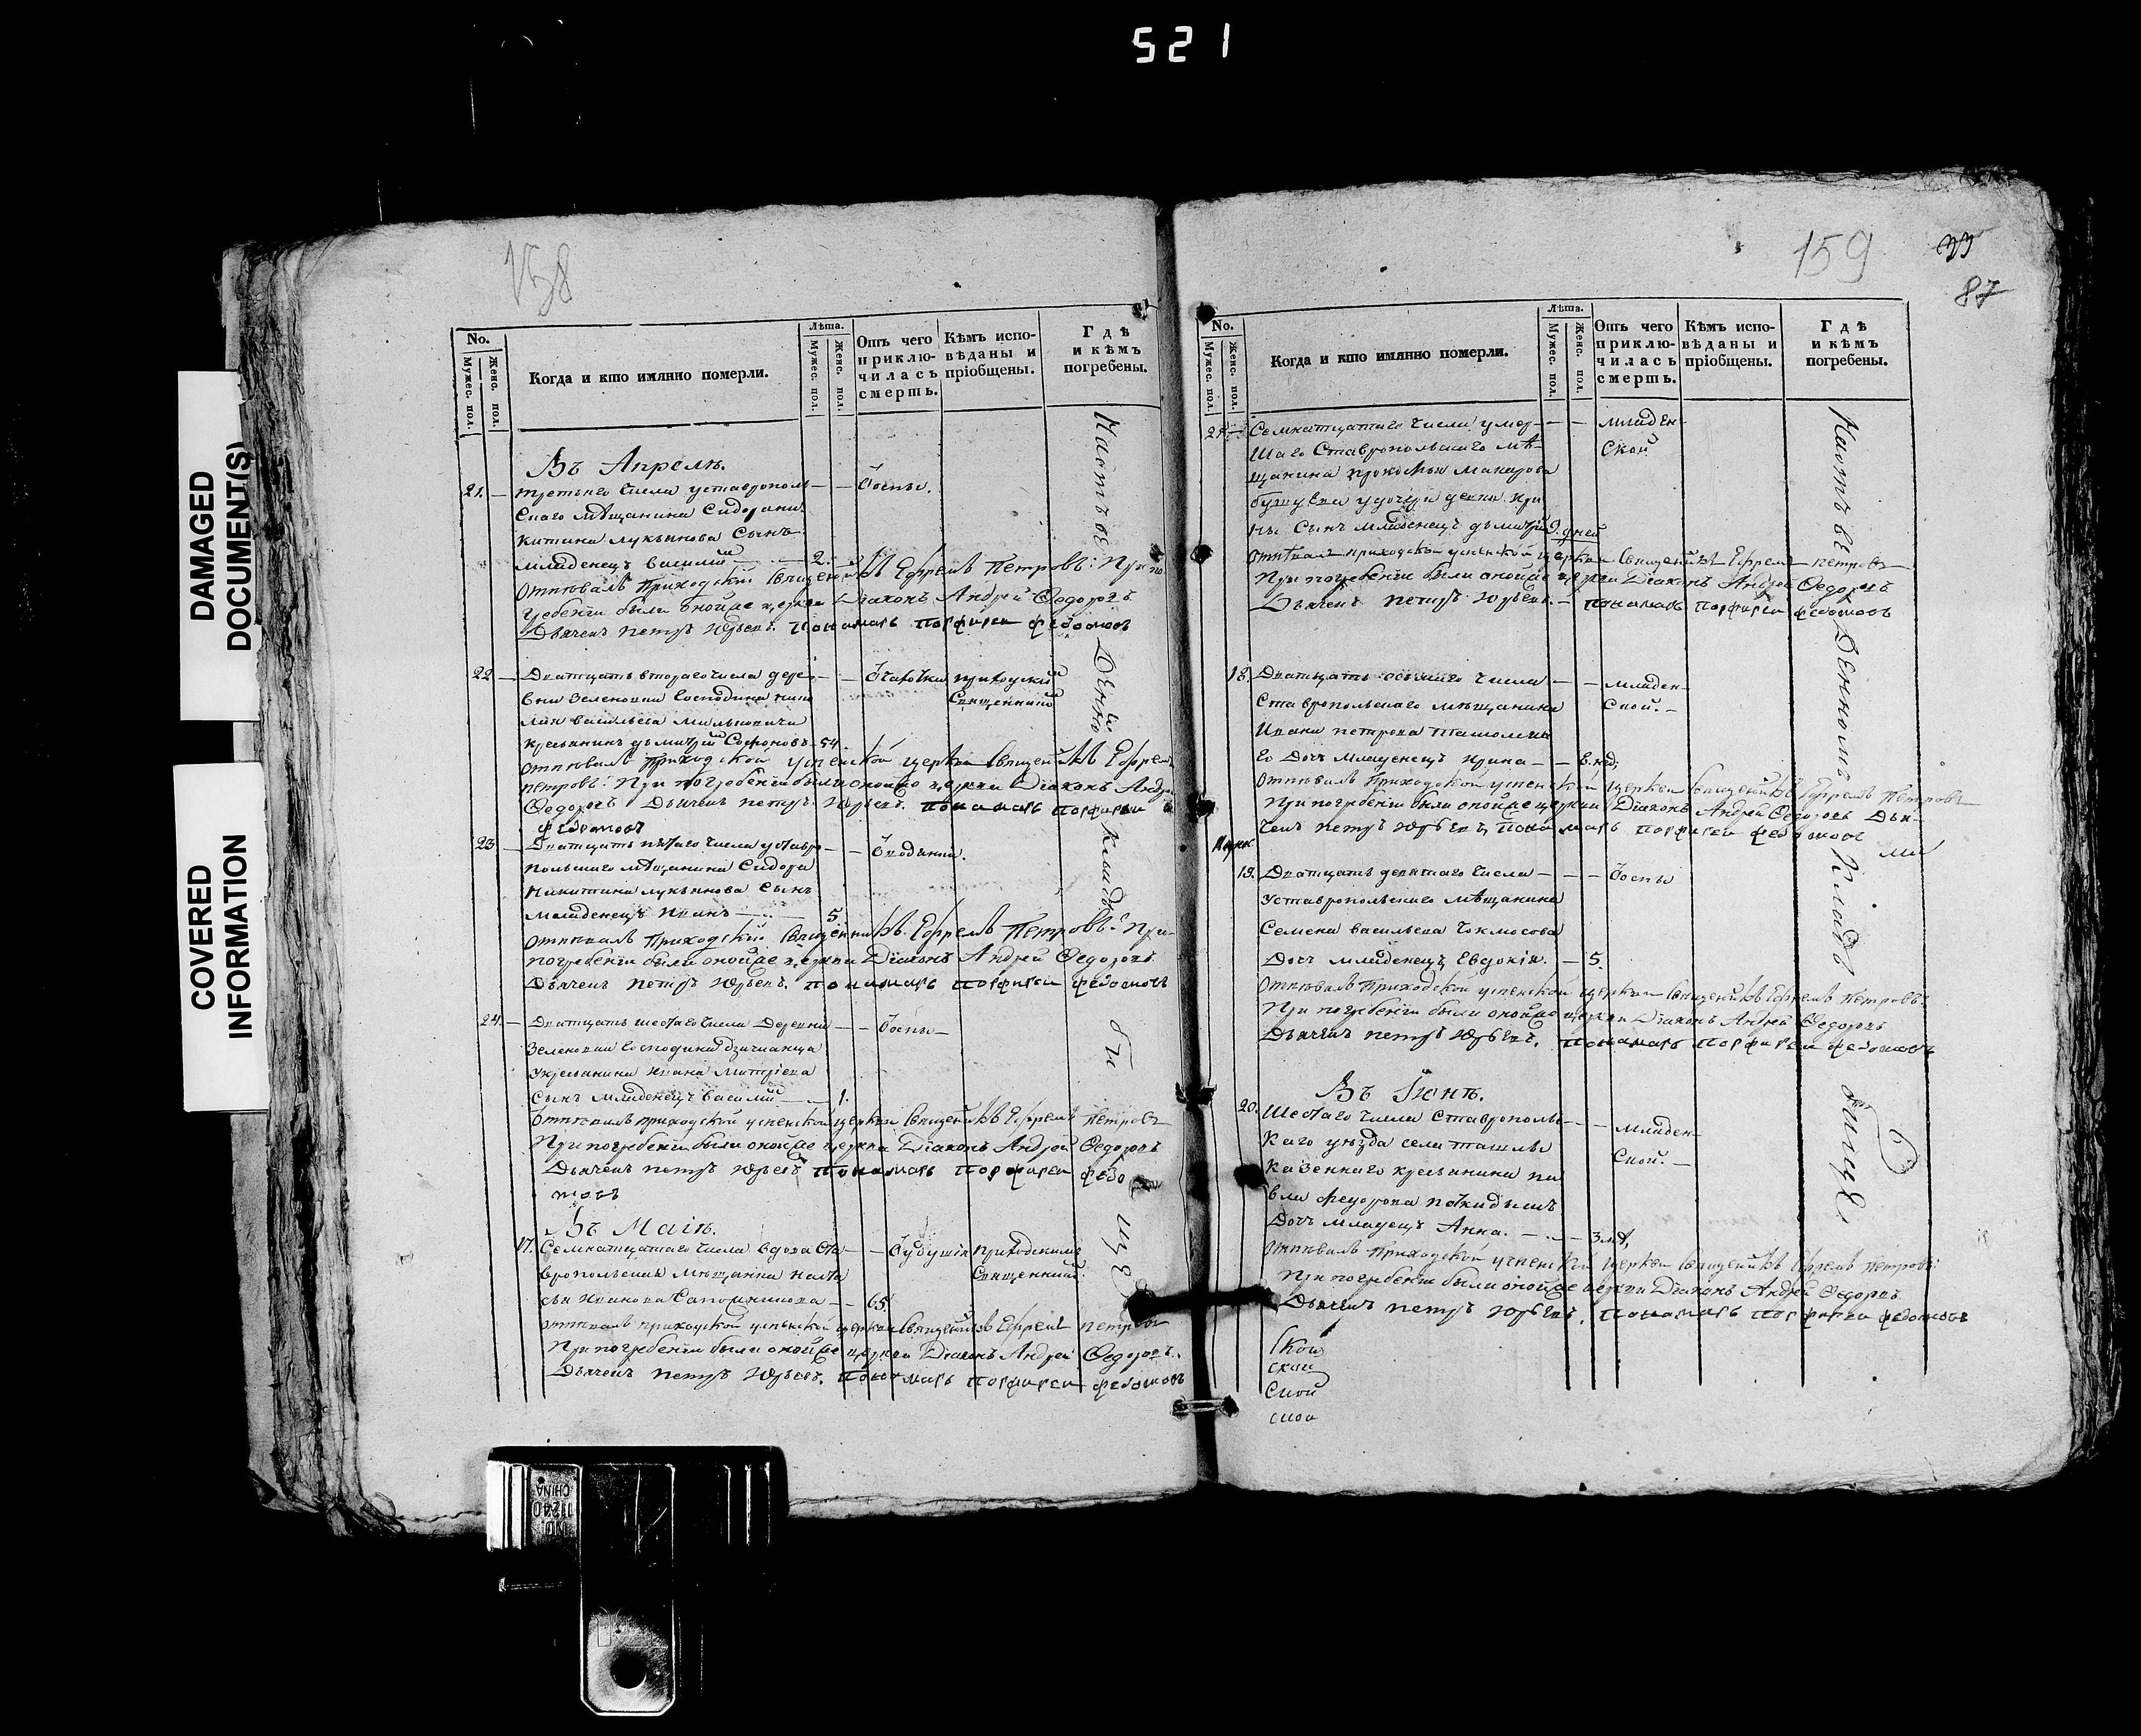 521
DAMAGED
DOCUMENT(S)
COVERED
INFORMATION
158
No.
Мужес. пол.
Женс. пол.
Когда и кто имянно померли.
Лѣта.
Мужес. пол.
Женс. пол.
Отъ чего
приклю-
чилась
смерть.
Кѣмъ испо-
вѣданы и
пріобщены.
Гдѣ
и кѣмъ
погребены.
Въ Апрелѣ.
21. — третьяго числа уставрополь — — Воспы.
скаго мѣщанина Сидорани
китина лукьянова Сынъ
младенецъ василій — 2.
Отпѣвалъ Приходскій Священникъ Ефремъ Петровъ: При по
гребеніи были оной же церкви Діаконъ Андрей Ѳедоровъ
Дьячекъ петръ Юрьевъ. пономарь порфирей федотовъ
22 — Дватцать втораго числа дере — — Чахотки приходским
вни Зеленовки Господина
Священником
васильева
кресьянинъ дьмитрій Софоновъ 54.
отпѣвалъ Приходской успенской церкви Священникъ Ефрем
петровъ: При погребеніи были оной же церкви Діаконъ Андре
Ѳедоровъ Дьячекъ петръ Юрьевъ. пономарь порфирей
федотовъ
23 — Дватцать пятаго числа уставро — —
польскаго мѣщанина Сидора
Никитина лукьянова Сынъ
младенецъ Иванъ — 5.
отпѣвалъ Приходскій Священникъ Ефремъ Петровъ: При
погребеніи были оной же церкви Діаконъ Андрей Ѳедоровъ
Дьячекъ петръ Юрьевъ. пономарь порфирей федотовъ
24. — Дватцать шестаго числа Деревни — — Воспы —
Зеленовки Господина
укресьянина Ивана Митріева
Сынъ младенецъ василий — 1.
Отпѣвалъ приходской успенской церкви Священникъ Ефремъ петровъ
При погребеніи были оной же церкви Діаконъ Андрей Ѳедоровъ
Дьячекъ петръ Юрьевъ пономарь порфирей федо
товъ
Въ Маіѣ.
17. Семнатцатаго числа вдова Ста — — приходскимъ
вропольская мѣщанка наста
Священником
сья Иванова Сапожникова — — 65.
отпѣвалъ приходской успенской церкви Священникъ Ефремъ петровъ
При погребеніи были оной же церкви Діаконъ Андрей Ѳедоровъ.
Дьячекъ петръ Юрьевъ. пономарь порфирей федотовъ
На отъве
денно
кладб
би
ще
159
87
No.
Мужес. пол.
Женс. пол.
Когда и кто имянно померли.
Лѣта.
Мужес. пол.
Женс. пол.
Отъ чего
приклю-
чилась
смерть.
Кѣмъ испо-
вѣданы и
пріобщены.
Гдѣ
и кѣмъ
погребены.
Семнатцатаго числа умер — — младен
шаго Ставропольскаго мѣ
ской
щанина Макарова
у дочери девки Ири
ны Сынъ младенецъ дьмитрій 9. дней
Отпѣвалъ приходской успенской церкви Священникъ Ефремъ петровъ
При погребеніи были оной же церкви Діаконъ Андрей Ѳедоровъ
Дьячекъ петръ Юрьевъ. — пономарь порфирей федотовъ
18. Дватцать осьмаго числа — — младен-
Ставропольскаго мѣщанина
ской. —
Ивана петрова
Его Дочь младенецъ Ирина — — 6. нед,
Отпѣвалъ Приходской успенской церкви Священникъ Ефремъ Петровъ
При погребеніи были оной же церкви Діаконъ Андрей Ѳедоровъ Дья-
чекъ петръ Юрьевъ, пономарь порфирей федотовъ
19. Дватцать девятаго числа — — — Воспы
уставропольскаго мѣщанина
Семена васильева
Дочь младенецъ Евдокія. — 5.
Отпѣвалъ Приходской успенской церкви Священникъ Ефремъ Петровъ:
При погребеніи были оной же церкви Діаконъ Андрей Ѳедоровъ
Дьячекъ петръ Юрьевъ. пономарь порфирей федотовъ
Въ Іюнѣ.
20. Шестаго числа Ставрополь — — младен-
скаго уѣзда села ташлы
ской. —
казеннаго кресьянина па
вла федорова
Дочь младенецъ Анна. — 3.
отпѣвалъ Приходской успенской церкви Священникъ Ефремъ Петровъ:
При погребеніи были оной же церкви Діаконъ Андрей Ѳедоровъ.
Дьячекъ петръ Юрьевъ. пономарь порфирей федотовъ
ской
ской
ской
ской
На отъве
денномъ
кладъ
бище
NO.
11240
CHINA